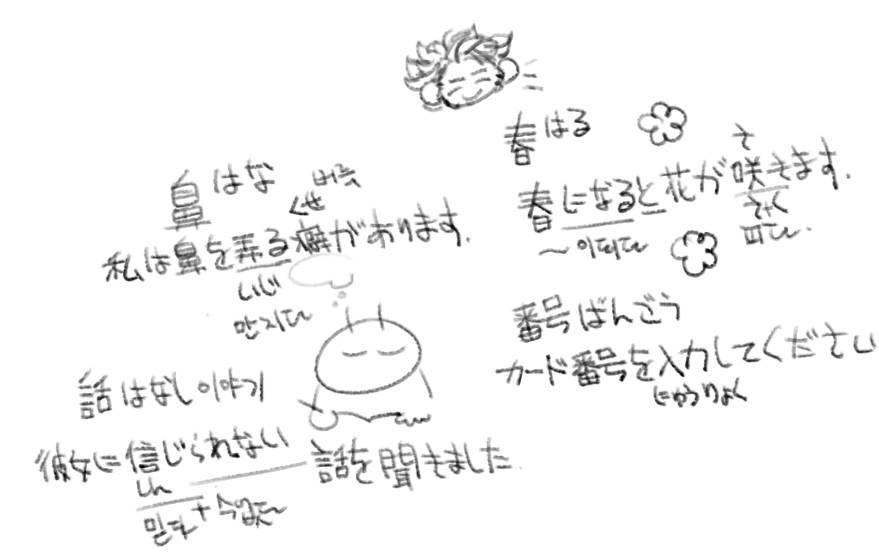 春 はる
さ
春になると花が咲きます.
さく
~이되다
피다.
鼻 はな
버릇
くせ
私は鼻を弄る癖があります.
いじ
만지다
番号 ばんごう
カード番号を入力してください
にゅうりょく
話 はなし 이야기
彼女に信じられない 話を聞きました.
しん
믿다 + 수없다